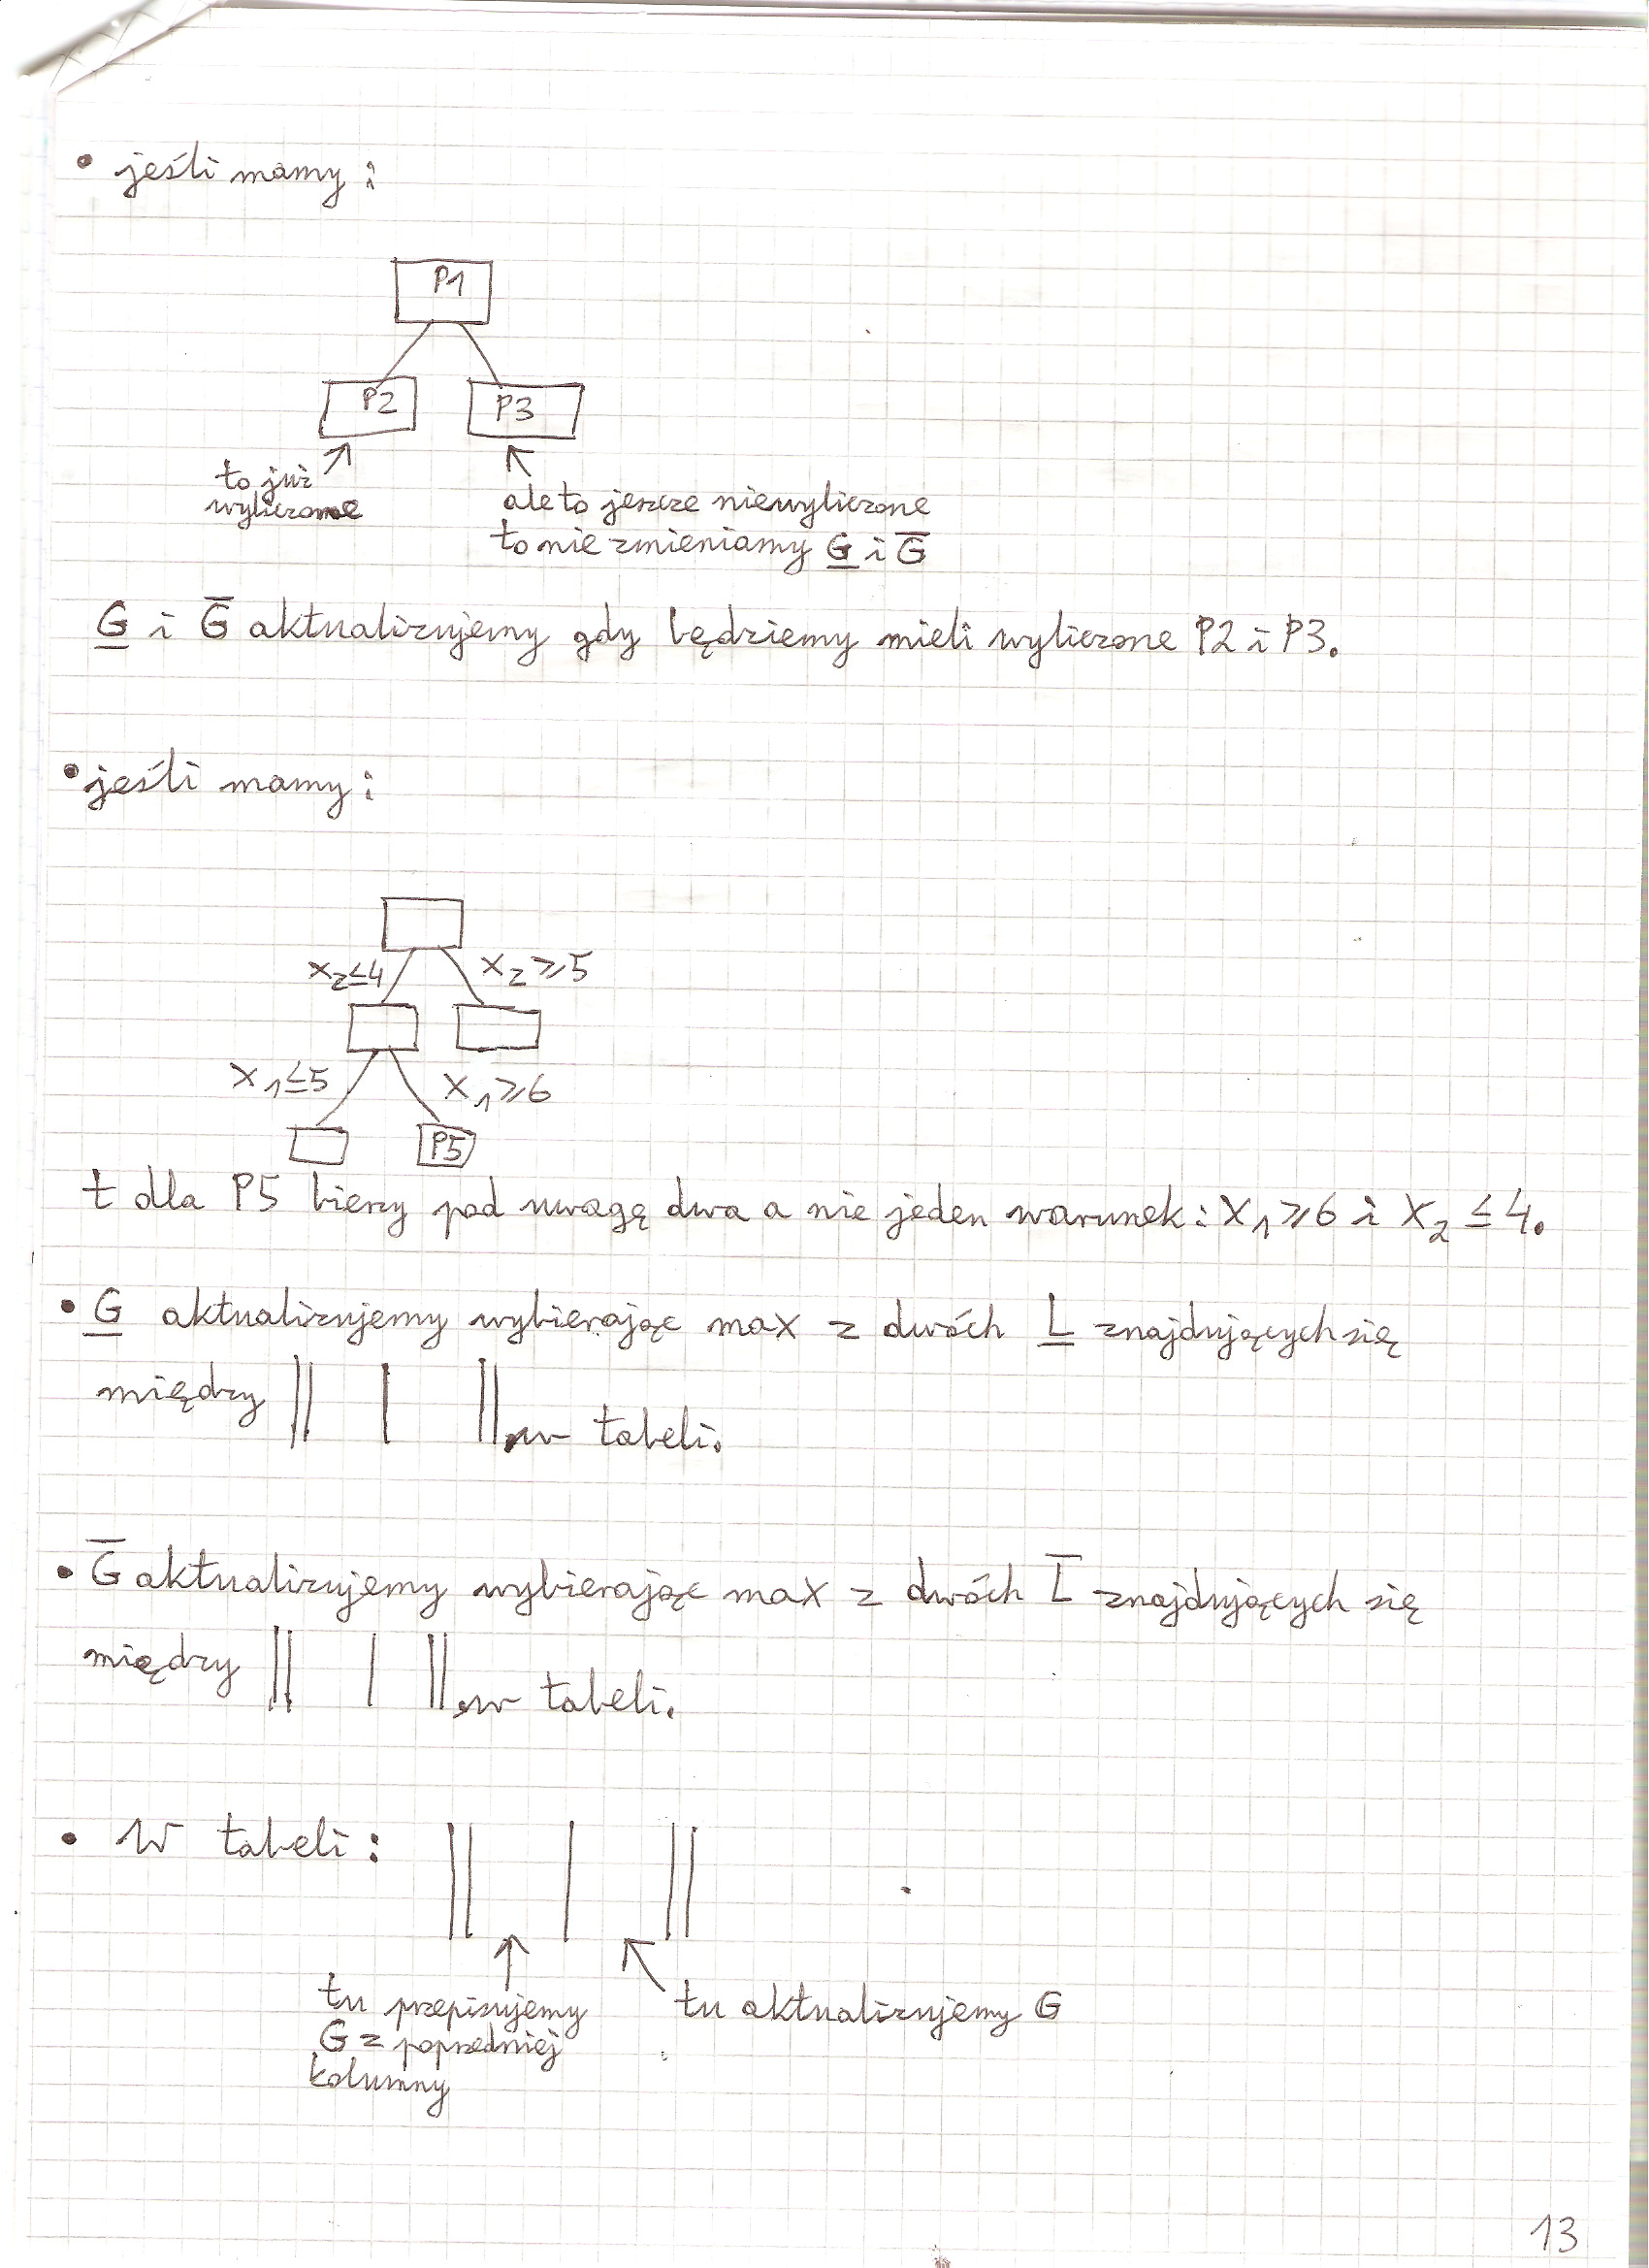 • jeśli mamy:
P1
P2 P3
to już
wyliczone
ale to jeszcze niewyliczone
to nie zmieniamy G̲ i G̅
G̲ i G̅ aktualizujemy gdy będziemy mieli wyliczone P2 i P3.
• jeśli mamy:
x₂≤4 x₂≥5
x₁≤5 x₁≥6
P5
t dla P5 bierzy pod uwagę dwa a nie jeden warunek: x₁≥6 i x₂≤4.
• G̲ aktualizujemy wybierając max z dwóch L̲ znajdujących się
między || | || w tabeli.
• G̅ aktualizujemy wybierając max z dwóch L̅ znajdujących się
między || | || w tabeli.
• W tabeli: || | ||
tu przepisujemy
G z poprzedniej
kolumny
tu aktualizujemy G
13